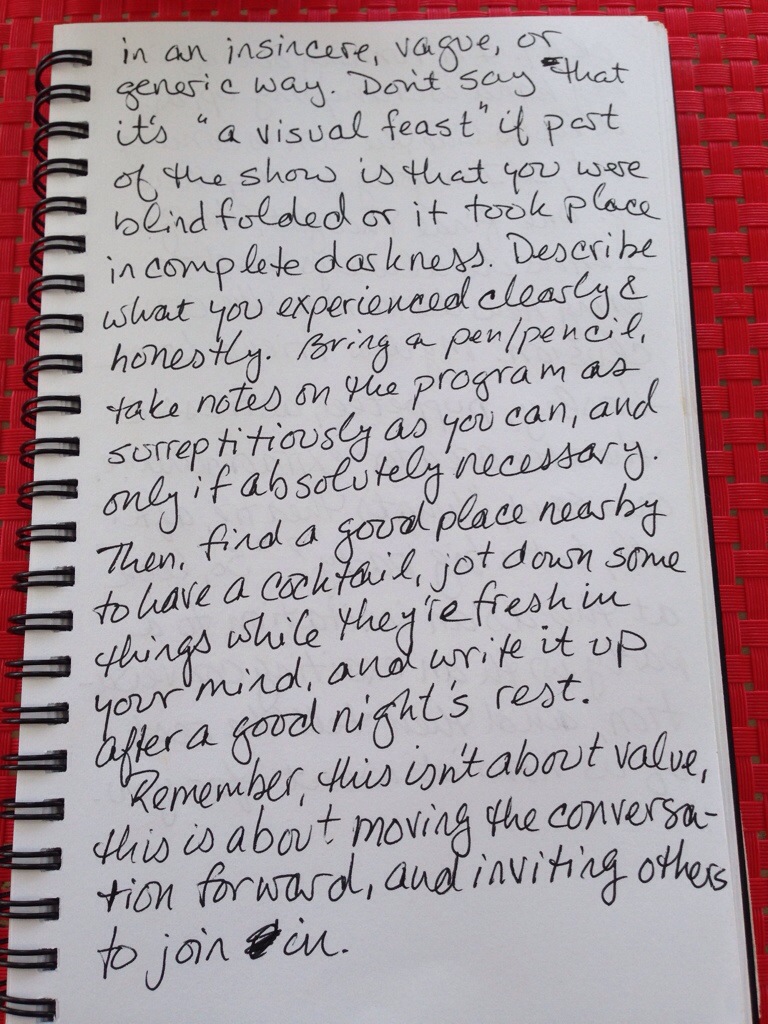 in an insincere, vague, or
generic way. Don't say that
it's "a visual feast" if part
of the show is that you were
blindfolded or it took place
in complete darkness. Describe
what you experienced clearly &
honestly. Bring a pen/pencil,
take notes on the program as
surreptitiously as you can, and
only if absolutely necessary.
Then, find a good place nearby
to have a cocktail, jot down some
things while they're fresh in
your mind, and write it up
after a good night's rest.
Remember, this isn't about value,
this is about moving the conversa-
tion forward, and inviting others
to join in.